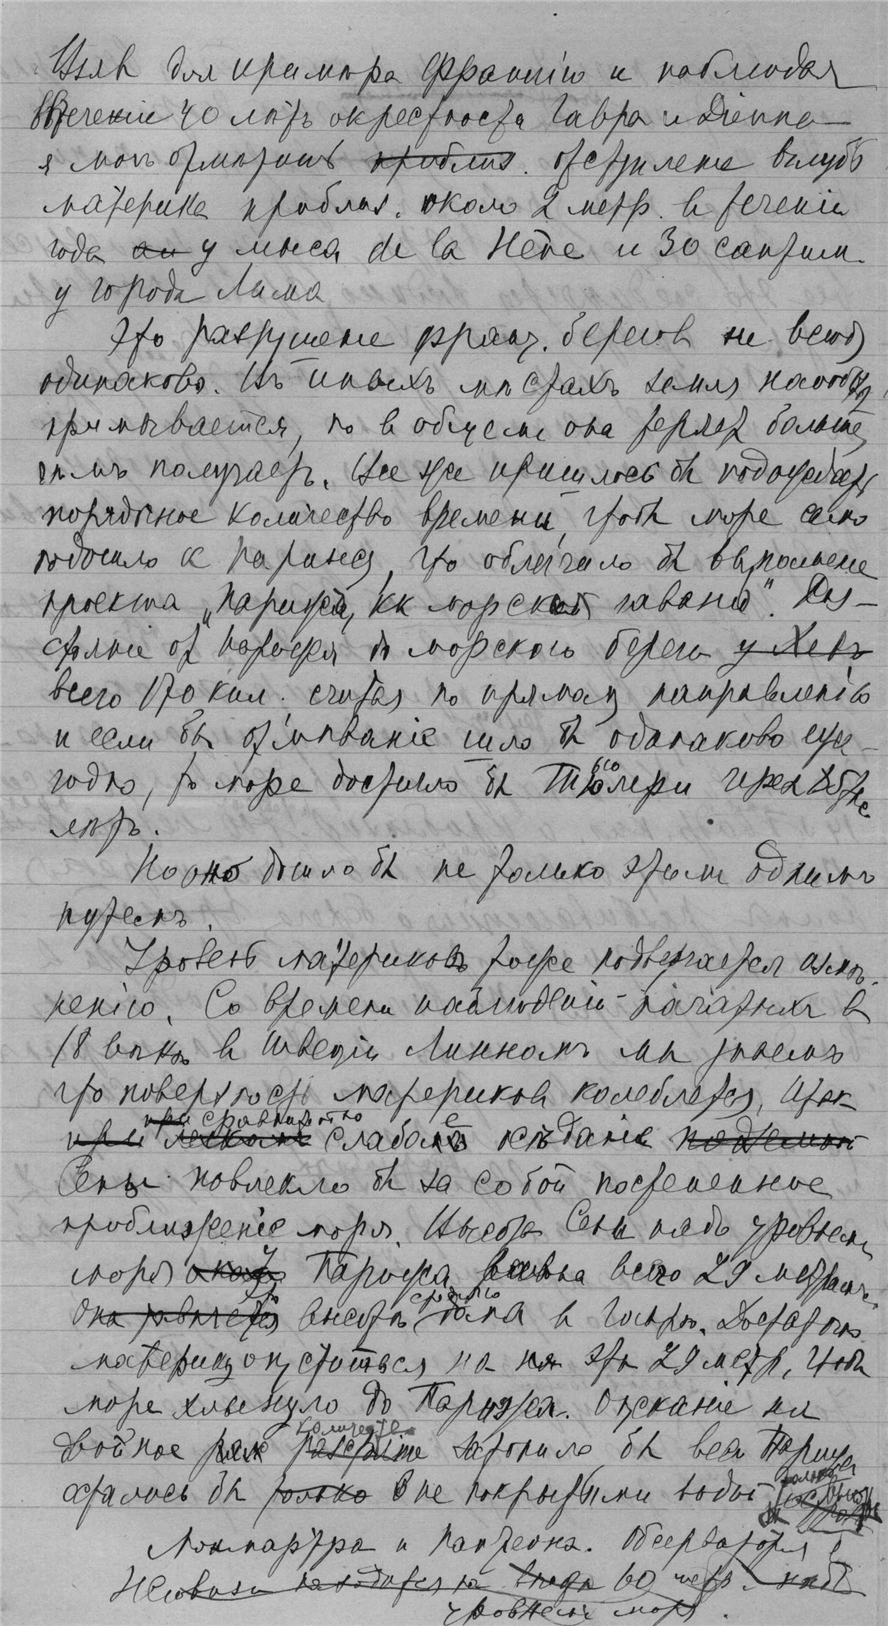 Взявъ для примѣра Францію и наблюдая
втеченіи 40 лѣтъ окрестности Гавра и Dieппа
я могъ отмѣтить приблиз. отступленіе вглубь
материка приблиз. около 2 метр. в теченіи
года у мыса de la Hève и 30 сантим.
у города
Это разрушеніе франц. береговъ не всюду
одинаково. Въ иныхъ мѣстахъ земля наоборотъ
примывается, но в общемъ она теряетъ больше,
чѣмъ получаетъ. Все же пришлось бы подождать
порядочное количество времени, чтобы море само
подошло к Парижу, что облегчило бы выполненіе
проекта „Парижа, как морской гавани". Раз-
стояніе от Парижа до морского берега
всего 170 кил. считая по прямому направленію
и если бы отмываніе шло бы одинаково еже-
годно, то море достигло бы Тюльери черезъ
лѣтъ.
Но оно дошло бы не только этимъ однимъ
путемъ.
Уровень материковъ тоже подвергается измѣ-
ненію. Со времени наблюденій начатыхъ в
18 вѣкѣ в Швеціи Линнеемъ мы знаемъ
что поверхность материковъ колеблется. Итак
при сравнительно
при слабое осѣданіе
Сены повлекло бы за собой постепенное
приближеніе моря. Высота Сены надъ уровнемъ
моря у Парижа равна всего 29 метрамъ.
Это средняго
Она равняется высотѣ дома в городѣ. Достаточно
материку опуститься на эти 29 метр., чтобы
море хлынуло до Парижа. Опусканіе на
количество
двойное разстояніе затопило бы весь Парижъ
остались бы только не покрытыми водой только
Монмартра и Пантеона. Обсерваторія
находится на 60 метр. надъ
уровнемъ моря.